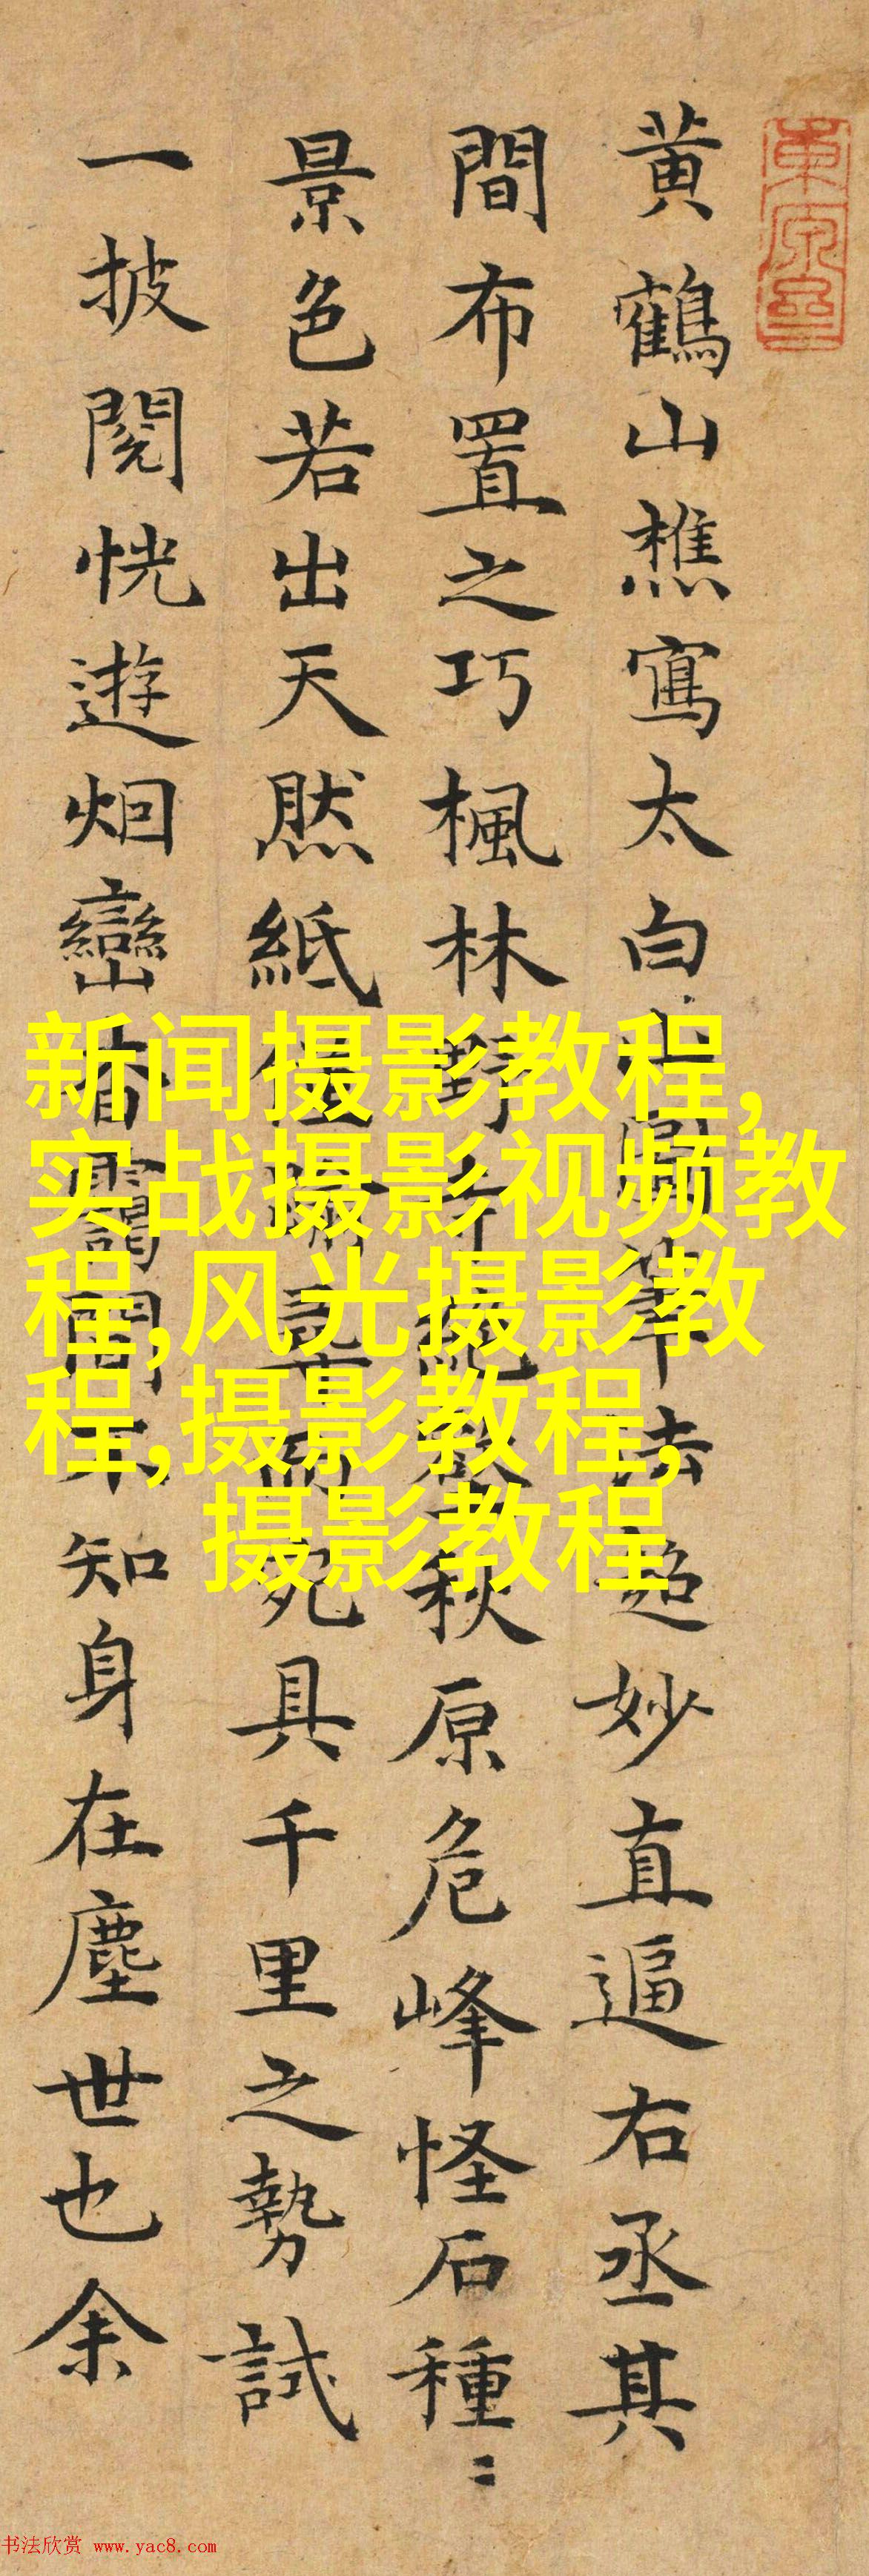 黄鶴山樵寫太白
法超妙直逼右丞其
間布置之巧楓林野
秋原危峰怪石種〻
景色若出天然紙
具千里之勢試
一披閲恍遊烟巒
知身在塵世也余
新闻摄影教程,
实战摄影视频教
程,风光摄影教
程,摄影教程,
摄影教程
书法欣赏 www.yac8.com